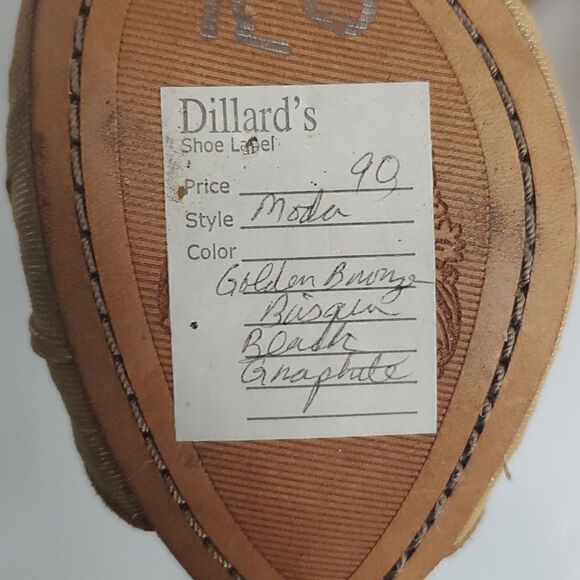 Dillard's
Shoe Label
Price 90
Style Moda
Color
Golden Bronze
Black
Graphite